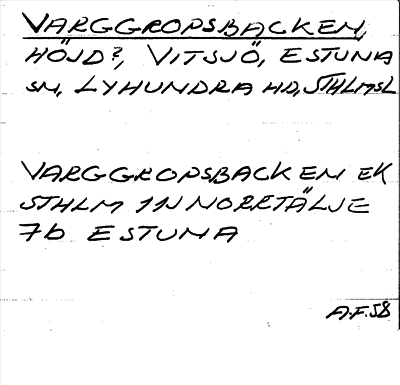 VARGGROPSBACKEN,
HÖJD?, VITSJÖ, ESTUNA
SN, LYHUNDRA HD, STHLMSL
VARGGROPSBACKEN EK
STHLM 11N NORRTÄLJE
7b ESTUNA
A.F. 58